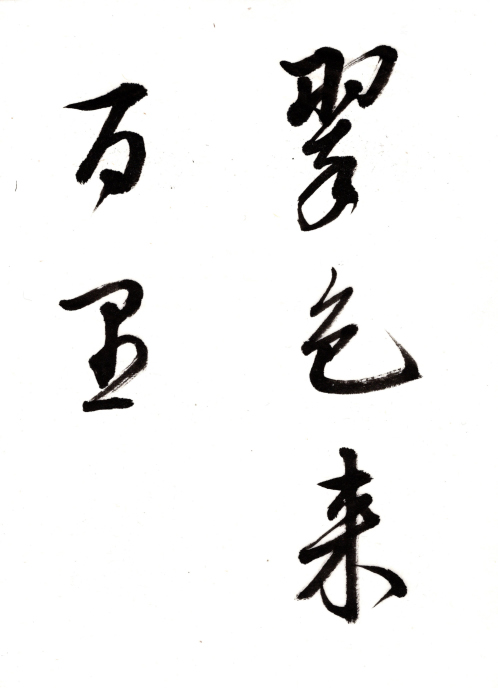 翠色来
百里